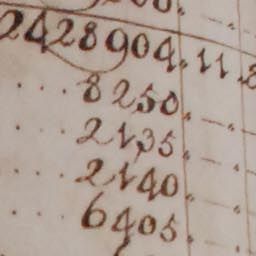 2428904.11.8
....8250.-.-
....2135.-.-
....2140.-.-
....6405.-.-